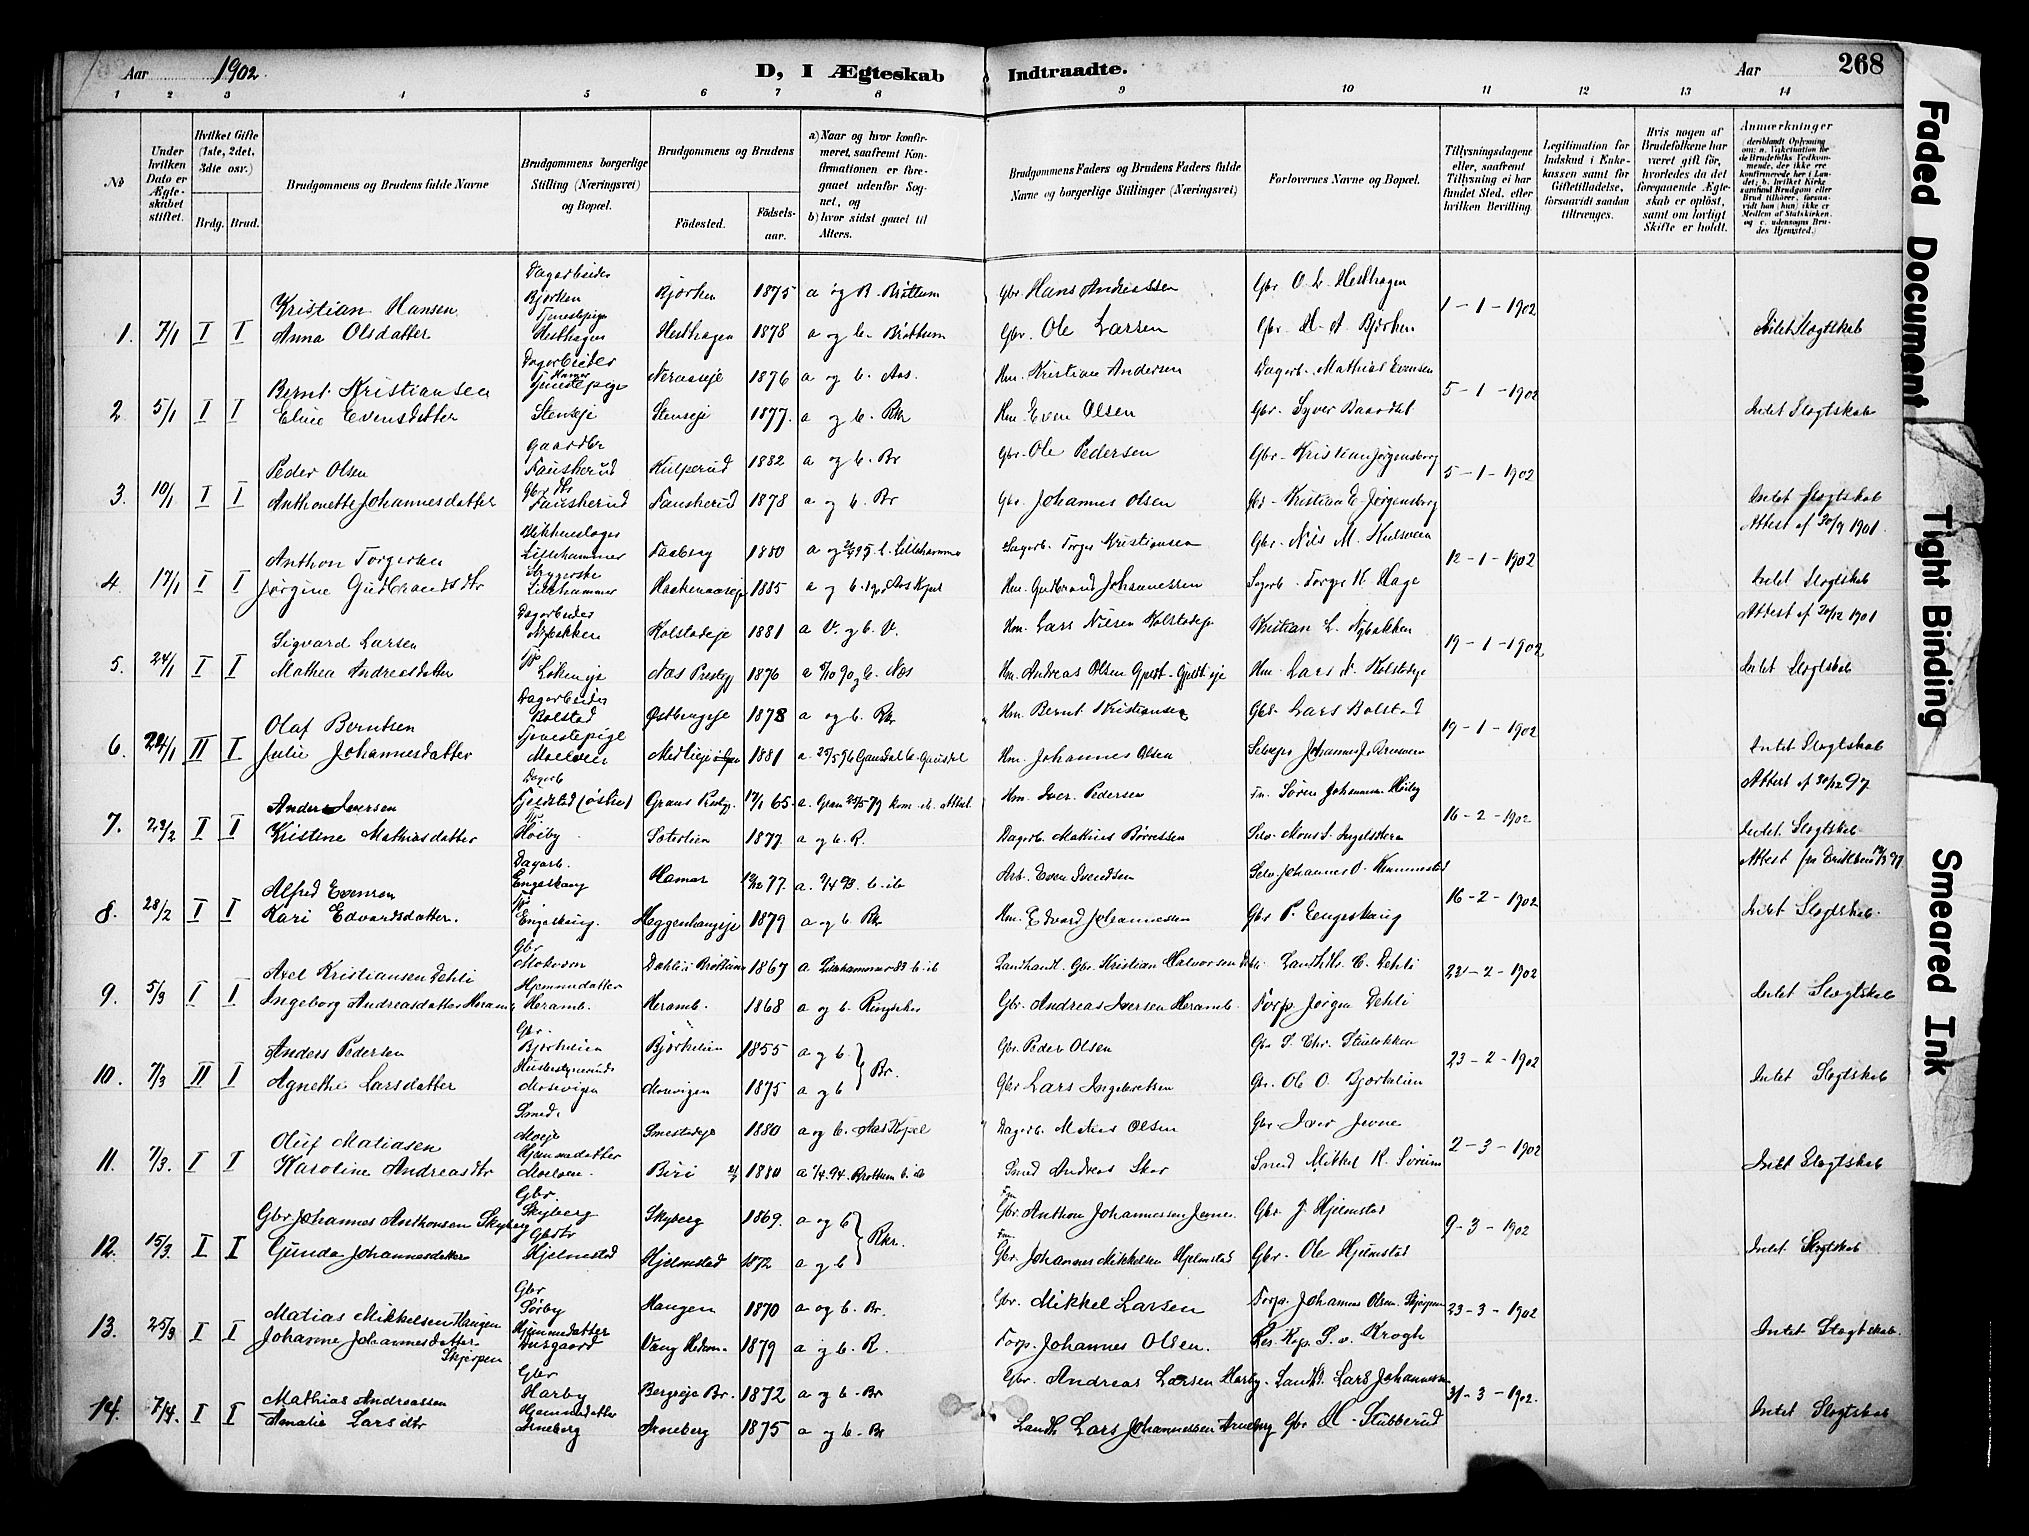 Aar 1902. D, I Ægteskab Indtraadte. Aar 268
1 2 3 4 5 6 7 8 9 10 11 12 13 14
No
Under hvilken Dato er Ægteskabet stiftet.
Hvilket Gifte (1ste, 2det, 3die osv.)
Brdg. Brud.
Brudgommens og Brudens fulde Navne
Brudgommens borgerlige Stilling (Næringsvei) og Bopæl.
Brudgommens og Brudens
Födested. Födselsaar.
a) Naar og hvor konfirmeret, saafremt Konfirmationen er foregaaet udenfor Sognet, og
b) hvor sidst gaaet til Alters.
Brudgommens Faders og Brudens Faders fulde Navne og borgerlige Stillinger (Næringsvei)
Forlovernes Navne og Bopæl.
Tillysningsdagene eller, saafremt Tillysning ei har fundet Sted, efter hvilken Bevilling.
Legitimation for Indskud i Enkekassen samt for Giftetilladelse, forsaavidt sandan tiltrænges.
Hvis nogen af Brudefolkene har været gift för, hvorledes da det foregaaende Ægteskab er oplöst, samt om lovligt Skifte er holdt.
Anmærkninger (deriblandt Oplysning om: a. Vakcination for de Brudefolks Vedkommende, der ikke ere konfirmerede her i Landet; b. hvilket Kirkesamfund Brudgom eller Brud tilhörer, forsaavidt han (hun) ikke er Medlem af Statskirken, og c. udensogns Brudes Hjemsted.)
Dagarbeider
Kristian Hansen Bjørken Bjørken 1875 a og B. Brøttum Gbr Hans Andreassen Gbr O. L. Hesthagen 1-1-1902
Tjenestepige
1. 7/1 I I Anna Olsdatter Hesthagen Hesthagen 1878 a og b. Brøttum Gbr. Ole Larsen Gbr. H. A. Bjørken Intet Slegtskab
Dagarbeider
Bernt Kristiansen Hamar Neraseje 1876 a og b. Aas. Hm. Kristian Andersen Dagarb. Mathias Evensen 5-1-1902
Tjenestepige
2. 5/1 I I Eline Evensdatter Stenseje Stenseje 1877. a og b. Rkr Hm. Even Olsen Gbr. Syver Baardset Intet Slegtskab
Gaardbr
Peder Olsen Fauskerud Kulperud 1882 a og b. Br Gbr. Ole Pedersen Gbr. Kristian Jørgensborg 5-1-1902
3. 10/1 I I Anthonette Johannesdatter Fauskerud Fauskerud 1878 a og b. Br Gbr. Johannes Olsen Gbr. Kristian E. Jørgensborg Intet Slegtskab
Attest af 30/9 1901.
Anthon Torgersen Lillehammer Faaberg 1880 Lillehammer Torger Kristiansen Gbr. Nils M. 12-1-1902
4. 17/1 I I Jørgine Gudbrandsdtr Lillehammer 1885 a og b. Hm. Gudbrand Johannessen Torger K. Hage Intet Slegtskab
Attest af 30/12 1901
Dagarbeider
Sigvard Larsen Nybakken Kolstadeje 1881 a V. og b. V. Hm. Lars Nilsen Kolstadeje Kristian L. Nybakken 19-1-1902.
5. 24/1 I I Mathea Andreasdatter Næs Prestegj 1876 Næs Hm. Andreas Olsen Hm. Lars N. Kolstadeje Intet Slegtskab
Dagarbeider
Olaf Berntsen Bolstad Østbergeje 1878 a og b. Rkr Hm. Bernt Kristiansen Gbr. Lars Bolstad 19-1-1902
Tjenestepige
6. 24/1 II I Julie Johannesdatter Moelven 1881 a. 25/5 96 Gausdal b. Gausdal Hm. Johannes Olsen Selvejer Johannes J. Intet Slegtskab
Dagarb Attest af 30/12 97.
Anders Iversen Gjeldstad (østre) Grans Prestgj. 17/1 65. a. Gran 25/5 79 Hm. Iver Pedersen Søren Johannesen Høiby 16-2-1902
7. 22/2 I I Kristine Mathiasdatter Høiby Sæterlien 1877. a og b. R. Dagarb. Mathias Børresen Intet Slegtskab.
Dagarb.
Alfred Evensen Engeskaug Hamar 12/12 77. b. ib Arb. Even Svendsen Selv Johannes O. 16-2-1902
8. 28/2 I I Kari Edvardsdatter. Engeskaug. Heggenhaugeje 1879 a og b. Rkr Hm. Edvard Johannessen Gbr P. Engeskaug Intet Slegtskab.
Gbr
Axel Kristiansen Dehli Dehli i Brøttum 1867 a Lillehammer 83 b. ib Landhandl. Gbr. Kristian Halvorsen Dehli Landh. C. Dehli 23-2-1902
Hjemmedatter
9. 5/3 I I Ingeborg Andreasdatter Heramb Heramb. Heramb. 1868 a og b. Ringsaker Gbr. Andreas Iversen Heramb. Forp Jørgen Dehli Intet Slegtskab
Gbr.
Anders Pedersen Bjørkelien Bjørkelien 1855 a og b Br. Gbr. Peder Olsen 23-2-1902
10. 7/3 II I Agnethe Larsdatter Mosevigen Mosevigen 1875 a og b Gbr Lars Ingebretsen Gbr. Ole O. Bjørkelien Intet Slegtskab
Smed.
Oluf Matiasen Moeje Smestadeje 1880 a og b. Aas Kapel Dagarb. Matias Olsen Gbr Iver Jevne 2-3-1902
Hjemmedatter
11. 7/3. I I Karoline Andreasdtr Moelven. Biri 1880 Brøttum b. ib Smed Andreas Skar Smed Mikkel K. Sørum Intet Slegtskab
Gbr.
Gbr Johannes Anthonsen Skyberg Skyberg Skyberg 1869. a og b Rkr. Gbr. Anthon Johannessen Jevne Gbr J Hjelmstad 9-3-1902
12. 15/3. I I Gunda Johannesdatter Hjelmstad Hjelmstad 1872 a og b Gbr. Johannes Mikkelsen Hjelmstad Gbr. Ole Hjelmstad Intet Slegtskab
Gbr
Matias Mikkelsen Haugen Sørby Haugen 1870 a og b. Br. Gbr. Mikkel Larsen Forp. Johannes Olsen Skjerpen 23-3-1902
Hjemmedatter
13. 25/3 I I Johanne Johannesdatter Skjerpen Vang Hedem. 1879 a og b. R. Forp. Johannes Olsen. Res. Kap. S. v. Krogh Intet Slegtskab.
Gbr
Mathias Andreassen Harby Bergseje Br. 1872 a og b. Br Gbr. Andreas Larsen Harby. Landh. Lars Johannessen 31-3-1902.
Hjemmedatter
14. 7/4. I I Amalie Larsdtr Arneberg Arneberg 1875 a og b. Br Landh Lars Johannessen Arneberg Gbr H. Stubberud Intet Slegtskab
Faded Document
Tight Binding
Smeared Ink